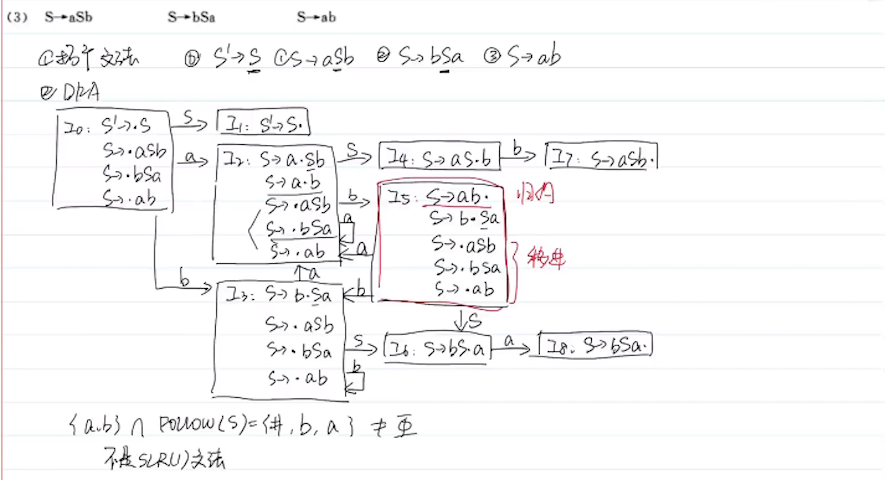 (3) S→aSb S→bSa S→ab
①拓广文法 ⓪ S'→S ①S→aSb ② S→bSa ③ S→ab
② DFA
I0: S'→·S
S→·aSb
S→·bSa
S→·ab
S
I1: S'→S·
a
I2: S→a·Sb
S→a·b
S→·aSb
S→·bSa
S→·ab
S
I4: S→aS·b
b
I7: S→aSb·
b
a
a
I5: S→ab·
S→b·Sa
S→·aSb
S→·bSa
S→·ab
归约
移进
b
a
b
I3: S→b·Sa
S→·aSb
S→·bSa
S→·ab
S
b
S
I6: S→bS·a
a
I8: S→bSa·
{a,b} ∩ FOLLOW(S)={#, b, a} ≠ Φ
不是SLR(1)文法